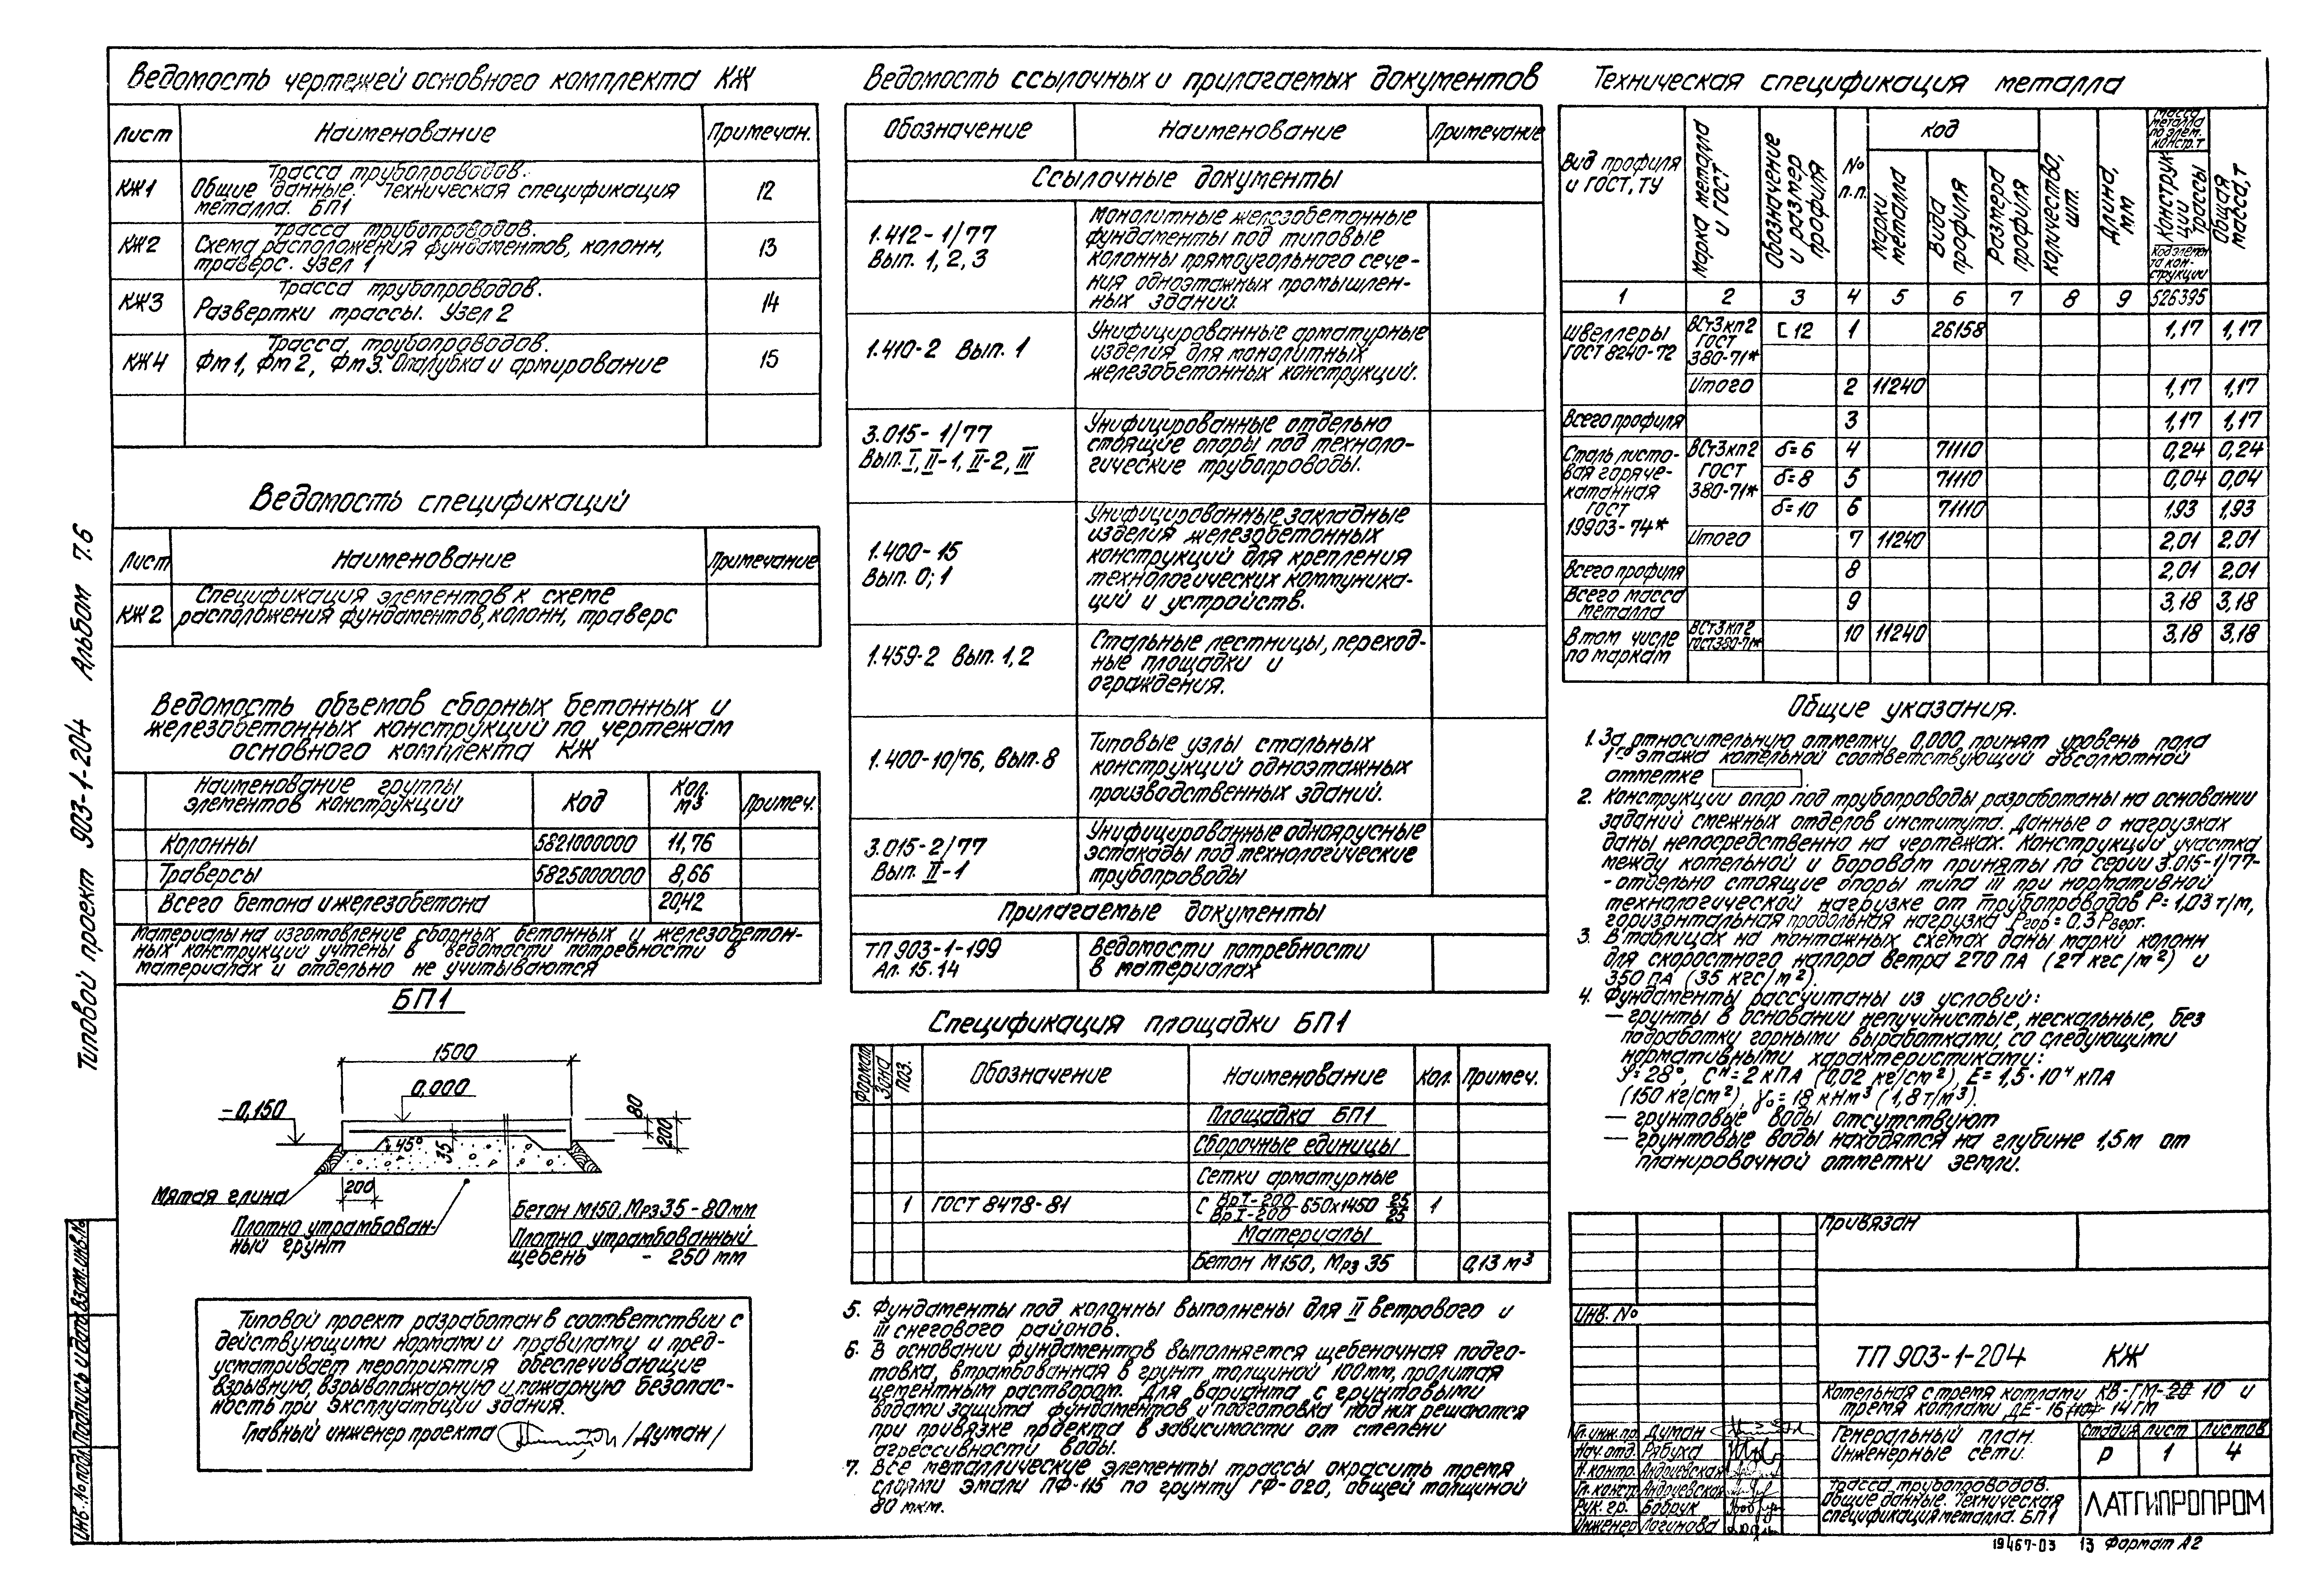 Типовой проект 903-1-204 Альбом 7.6
Ведомость чертежей основного комплекта КЖ
Лист Наименование Примечан.
КЖ1 Трасса трубопроводов. 12
Общие данные. Техническая спецификация
металла. БП1
КЖ2 Трасса трубопроводов. 13
Схема расположения фундаментов, колонн,
траверс. Узел 1
КЖ3 Трасса трубопроводов. 14
Развертки трассы. Узел 2
КЖ4 Трасса трубопроводов. 15
Фм1, Фм2, Фм3. Опалубка и армирование
Ведомость спецификаций
Лист Наименование Примечание
КЖ2 Спецификация элементов к схеме
расположения фундаментов, колонн, траверс
Ведомость объемов сборных бетонных и
железобетонных конструкций по чертежам
основного комплекта КЖ
Наименование группы
элементов конструкций Код Кол. м3 Примеч.
Колонны 5821000000 11,76
Траверсы 5825000000 8,66
Всего бетона и железобетона 20,42
Материалы на изготовление сборных бетонных и железобетон-
ных конструкций учтены в ведомости потребности в
материалах и отдельно не учитываются
БП1
1500
0,000
-0,150
80
200
45°
35
200
Мятая глина
Плотно утрамбован-
ный грунт
Бетон М150, Мрз 35 - 80мм
Плотно утрамбованный
щебень - 250 мм
Типовой проект разработан в соответствии с
действующими нормами и правилами и пред-
усматривает мероприятия обеспечивающие
взрывную, взрывопожарную и пожарную безопас-
ность при эксплуатации здания.
Главный инженер проекта /Думан/
Ведомость ссылочных и прилагаемых документов
Обозначение Наименование Примечание
Ссылочные документы
1.412-1/77
Вып. 1, 2, 3
Монолитные железобетонные
фундаменты под типовые
колонны прямоугольного сече-
ния одноэтажных промышлен-
ных зданий.
1.410-2 Вып. 1
Унифицированные арматурные
изделия для монолитных
железобетонных конструкций.
3.015-1/77
Вып. I, II-1, II-2, III
Унифицированные отдельно
стоящие опоры под техноло-
гические трубопроводы.
1.400-15
Вып. 0; 1
Унифицированные закладные
изделия железобетонных
конструкций для крепления
технологических коммуника-
ций и устройств.
1.459-2 Вып. 1,2
Стальные лестницы, переход-
ные площадки и
ограждения.
1.400-10/76, Вып. 8
Типовые узлы стальных
конструкций одноэтажных
производственных зданий.
3.015-2/77
Вып. II-1
Унифицированные одноярусные
эстакады под технологические
трубопроводы
Прилагаемые документы
ТП 903-1-199
Ал. 15.14
Ведомости потребности
в материалах
Спецификация площадки БП1
Формат Зона Поз. Обозначение Наименование Кол. Примеч.
Площадка БП1
Сборочные единицы
Сетки арматурные
1 ГОСТ 8478-81 С ВрI-200/ВрI-200 650х1450 25/25 1
Материалы
Бетон М150, Мрз 35 0,13 м3
5. Фундаменты под колонны выполнены для II ветрового и
III снегового районов.
6. В основании фундаментов выполняется щебеночная подго-
товка, втрамбованная в грунт толщиной 100мм, пролитая
цементным раствором. Для варианта с грунтовыми
водами защита фундаментов и подготовка под них решаются
при привязке проекта в зависимости от степени
агрессивности воды.
7. Все металлические элементы трассы окрасить тремя
слоями эмали ПФ-115 по грунту ГФ-020, общей толщиной
80 мкм.
Техническая спецификация металла
Вид профиля
и ГОСТ, ТУ
Марка металла
и ГОСТ
Обозначение
и размер
профиля
№
п.п.
Код
Марки
металла
Вида
профиля
Размера
профиля
Количество,
шт.
Длина,
мм
Масса
металла
по элем.
констр. т
Конструк-
ции
трассы
Код элемен-
та кон-
струкции
Общая
масса, т
1 2 3 4 5 6 7 8 9 526395
Швеллеры ГОСТ 8240-72 ВСт3кп2 ГОСТ 380-71* С12 1 26158 1,17 1,17
Итого 2 11240 1,17 1,17
Всего профиля 3 1,17 1,17
Сталь листо-
вая горяче-
катанная
ГОСТ
19903-74*
ВСт3кп2
ГОСТ
380-71*
δ=6 4 71110 0,24 0,24
δ=8 5 71110 0,04 0,04
δ=10 6 71110 1,93 1,93
Итого 7 11240 2,01 2,01
Всего профиля 8 2,01 2,01
Всего масса
металла 9 3,18 3,18
В том числе
по маркам ВСт3кп2 ГОСТ380-71* 10 11240 3,18 3,18
Общие указания.
1. За относительную отметку 0,000 принят уровень пола
1го этажа котельной соответствующий абсолютной
отметке
2. Конструкции опор под трубопроводы разработаны на основании
заданий смежных отделов института. Данные о нагрузках
даны непосредственно на чертежах. Конструкции участка
между котельной и боровам приняты по серии 3.015-1/77-
-отдельно стоящие опоры типа III при нормативной
технологической нагрузке от трубопроводов Р=1,03т/м,
горизонтальная продольная нагрузка Ргор=0.3Рверт.
3. В таблицах на монтажных схемах даны марки колонн
для скоростного напора ветра 270 ПА (27 кгс/м2) и
350 ПА (35 кгс/м2).
4. Фундаменты рассчитаны из условий:
— грунты в основании непучинистые, нескальные, без
подработку горными выработками, со следующими
нормативными характеристиками:
φ=28°, Сн=2 кПА (0,02 кг/см2), Е=1,5·10⁴ кПА
(150 кг/см2), γ₀=18 кНм3 (1,8т/м3).
— грунтовые воды отсутствуют
— грунтовые воды находятся на глубине 1,5м от
планировочной отметки земли.
Привязан
Инв. №
ТП 903-1-204 КЖ
Котельная с тремя котлами КВ-ГМ-20 10 и
тремя котлами ДЕ-16 14ГМ
Гл.инж.пр Думан
Нач.отд. Рябука
Н.контр. Андриевская
Гл.констр. Андриевская
Рук. гр. Бобрук
Инженер Логинова
Генеральный план.
Инженерные сети.
Стадия Лист Листов
Р 1 4
Трасса трубопроводов.
Общие данные. Техническая
спецификация металла. БП1
ЛАТГИПРОПРОМ
19467-03 13 Формат А2
Инв. № подл. Подпись и дата Взам. инв. №